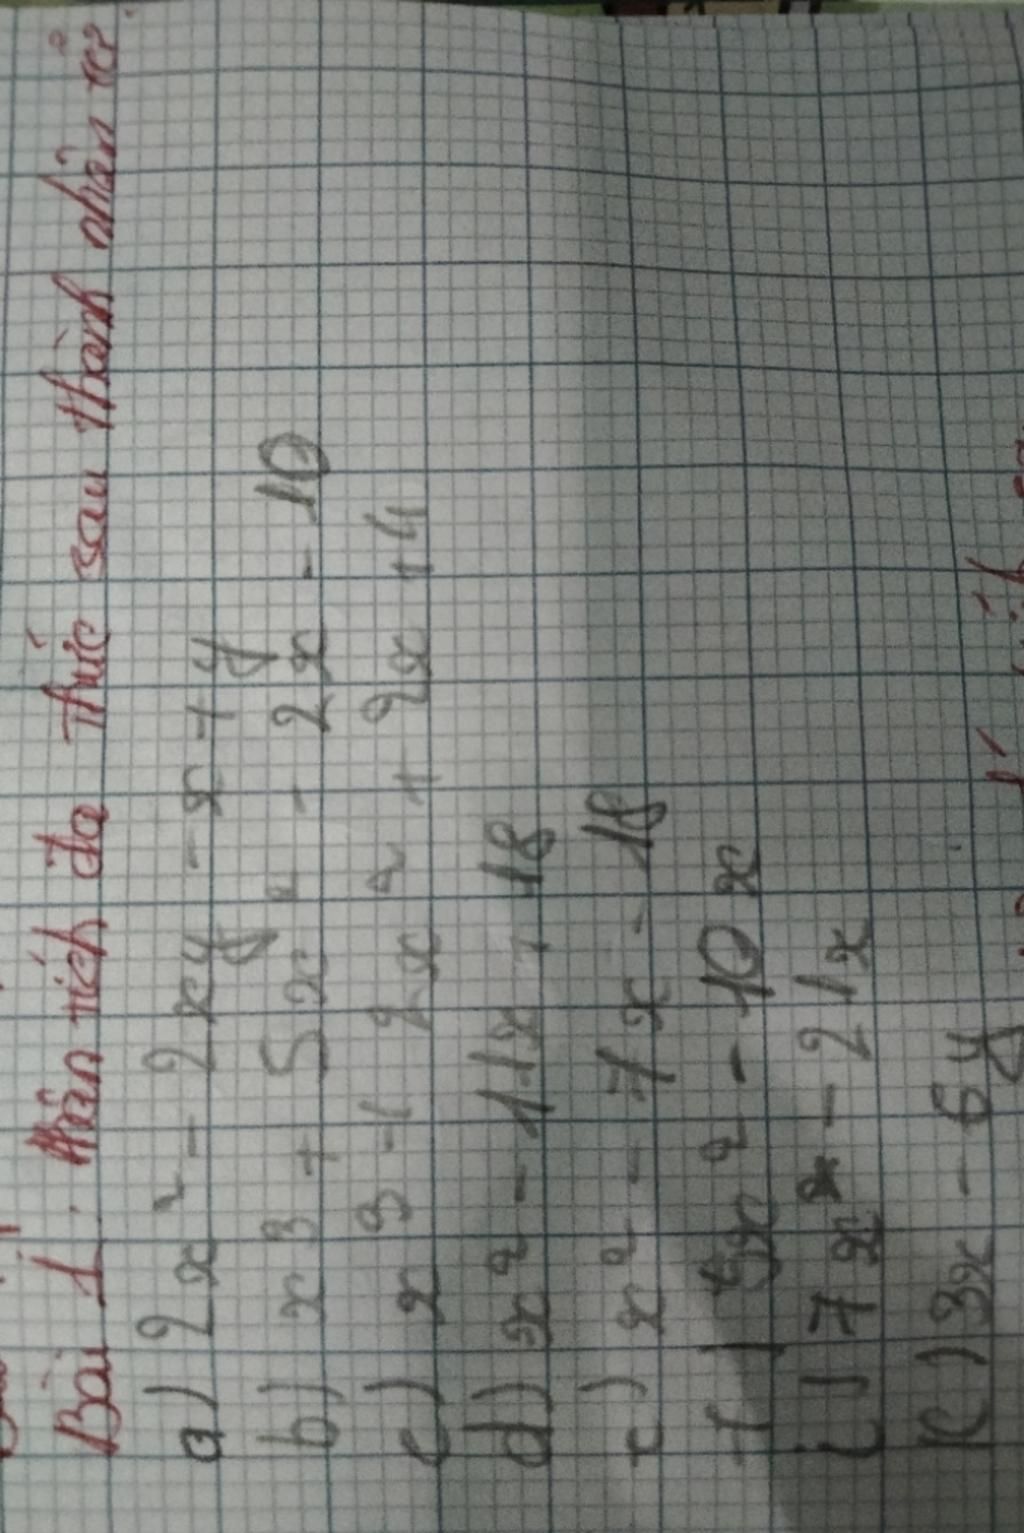 Bài 1. Phân tích đa thức sau thành nhân tử
a) 2x² - 2xy - x + y
b) x³ + 5x² - 2x - 10
c) x³ - 2x² + 2x + 4
d) x² - 11x + 18
e) x² - 7x - 18
f) 5x² - 10x
i) 7x² - 21x
k) 3x - 6y